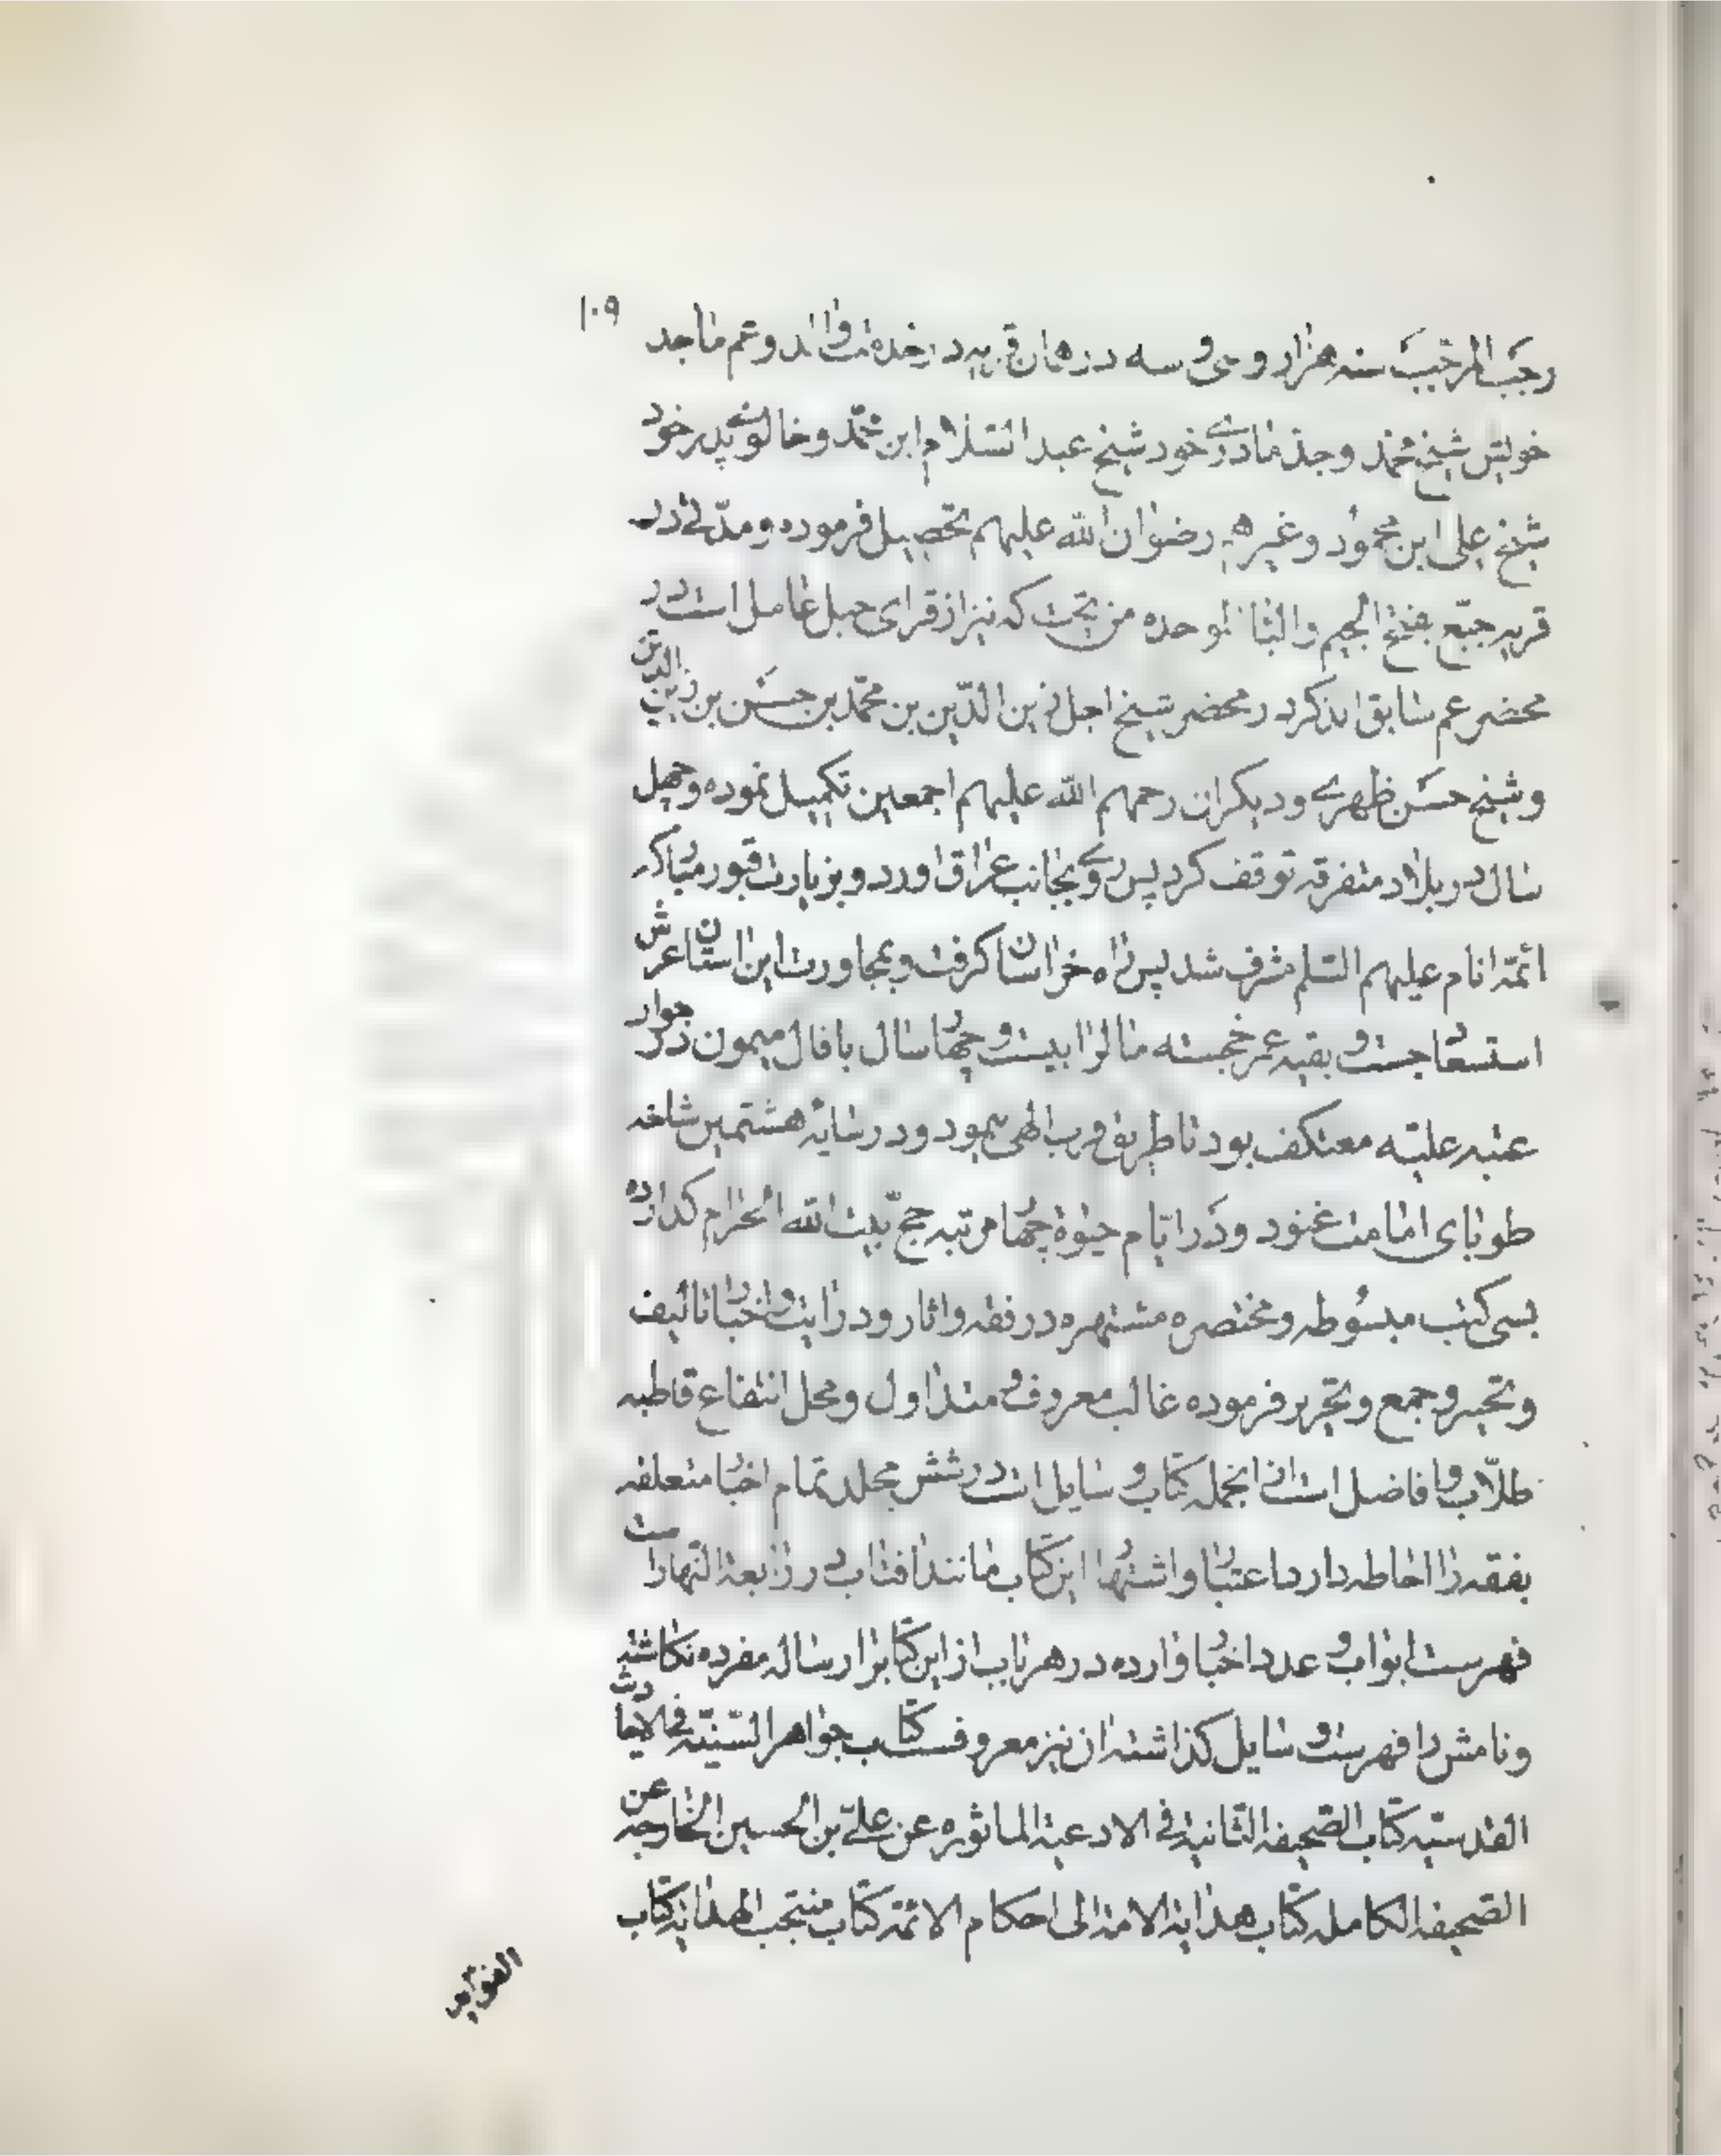 ۱۰۹
رجب المرجب سنه هزار و سی و سه در همان قریه در خدمت والد و عم ماجد
خویش شیخ محمد و جد مادری خود شیخ عبد السلام ابن محمد و خالوی پدر خود
شیخ علی ابن محمود و غیرهم رضوان الله علیهم تحصیل فرموده و مدتی در
قریه جبع بفتح الجیم و الباء الموحده من تحت که نیز از قرای جبل عامل است در
محضر عم سابق الذکر و در محضر شیخ اجل زین الدین بن محمد بن حسن بن زین الدین
و شیخ حسن ظهیری و دیکران رحمهم الله علیهم اجمعین تکمیل نموده و چهل
سال در بلاد متفرقه توقف کرد پس روی بجانب عراق اورد و بزیارت قبور مبارکه
ائمه انام علیهم السلم مشرف شد پس راه خراسان کرفت و بمجاورت این استان عرش
استسعا جست و بقیه عمر خجسته مال را بیست و چهار سال با فال میمون در جوار
عتبه علیه معتکف بود تا طریق قرب الهی پیمود و در سایه هشتمین شاخه
طوبای امامت غنود و در ایام حیوة چهار مرتبه حج بیت الله الحرام کذارده
بسی کتب مبسوطه و مختصره مشتهره در فقه و اثار و درایت و اخبار تالیف
و تحبیر و جمع و تحریر فرموده غالب معروف و متداول و محل انتفاع قاطبه
طلاب و افاضل است از انجمله کتاب وسایل است در شش مجلد تمام اخبار متعلقه
بفقه را احاطه دارد اعتبار و اشتهار این کتاب مانند افتاب در رابعة النهار است
فهرست ابواب و عدد اخبار وارده در هر باب از این کتاب را رساله مفرده نکاشته
و نامش را فهرست وسایل کذاشته ان نیز معروفست کتاب جواهر السنیه فی الاحادیث
القدسیه کتاب الصحیفه الثانیة فی الادعیة الماثوره عن علی بن الحسین الخارجه عن
الصحیفه الکامله کتاب هدایة الامة الی احکام الائمه کتاب منتجب الهدایه کتاب
الفوائد